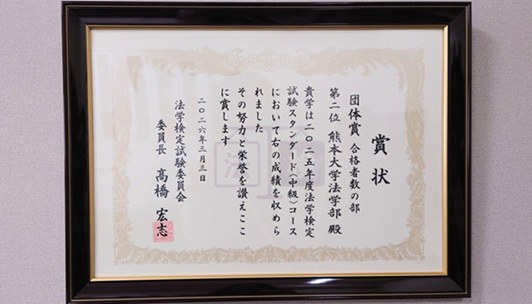 賞状
団体賞 合格者数の部
第二位 熊本大学法学部 殿
貴学は二〇二五年度法学検定
試験スタンダード(中級)コース
において右の成績を収めら
れました
その努力と栄誉を讃えここ
に賞します
二〇二六年三月三日
法学検定試験委員会
委員長 高橋宏志